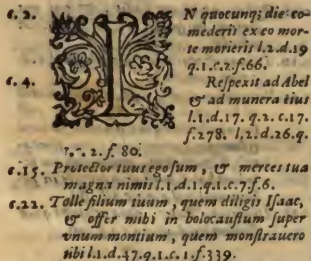 c. 2. IN quocunq; die co-
mederis ex eo mor-
te morieris l.2.d.19
q.1.c.2.f.66.
c. 4. Respexit ad Abel
& ad munera eius
l.1.d.17.q.2.c.17.
f.278. l.2.d.26.q.
1.c.2.f.80.
c.15. Protector tuus ego sum, & merces tua
magna nimis l.1.d.1.q.1.c.7.f.6.
c.22. Tolle filium tuum, quem diligis Isaac,
& offer mihi in holocaustum super
vnum montium, quem monstrauero
tibi l.1.d.47.q.1.c.1.f.339.